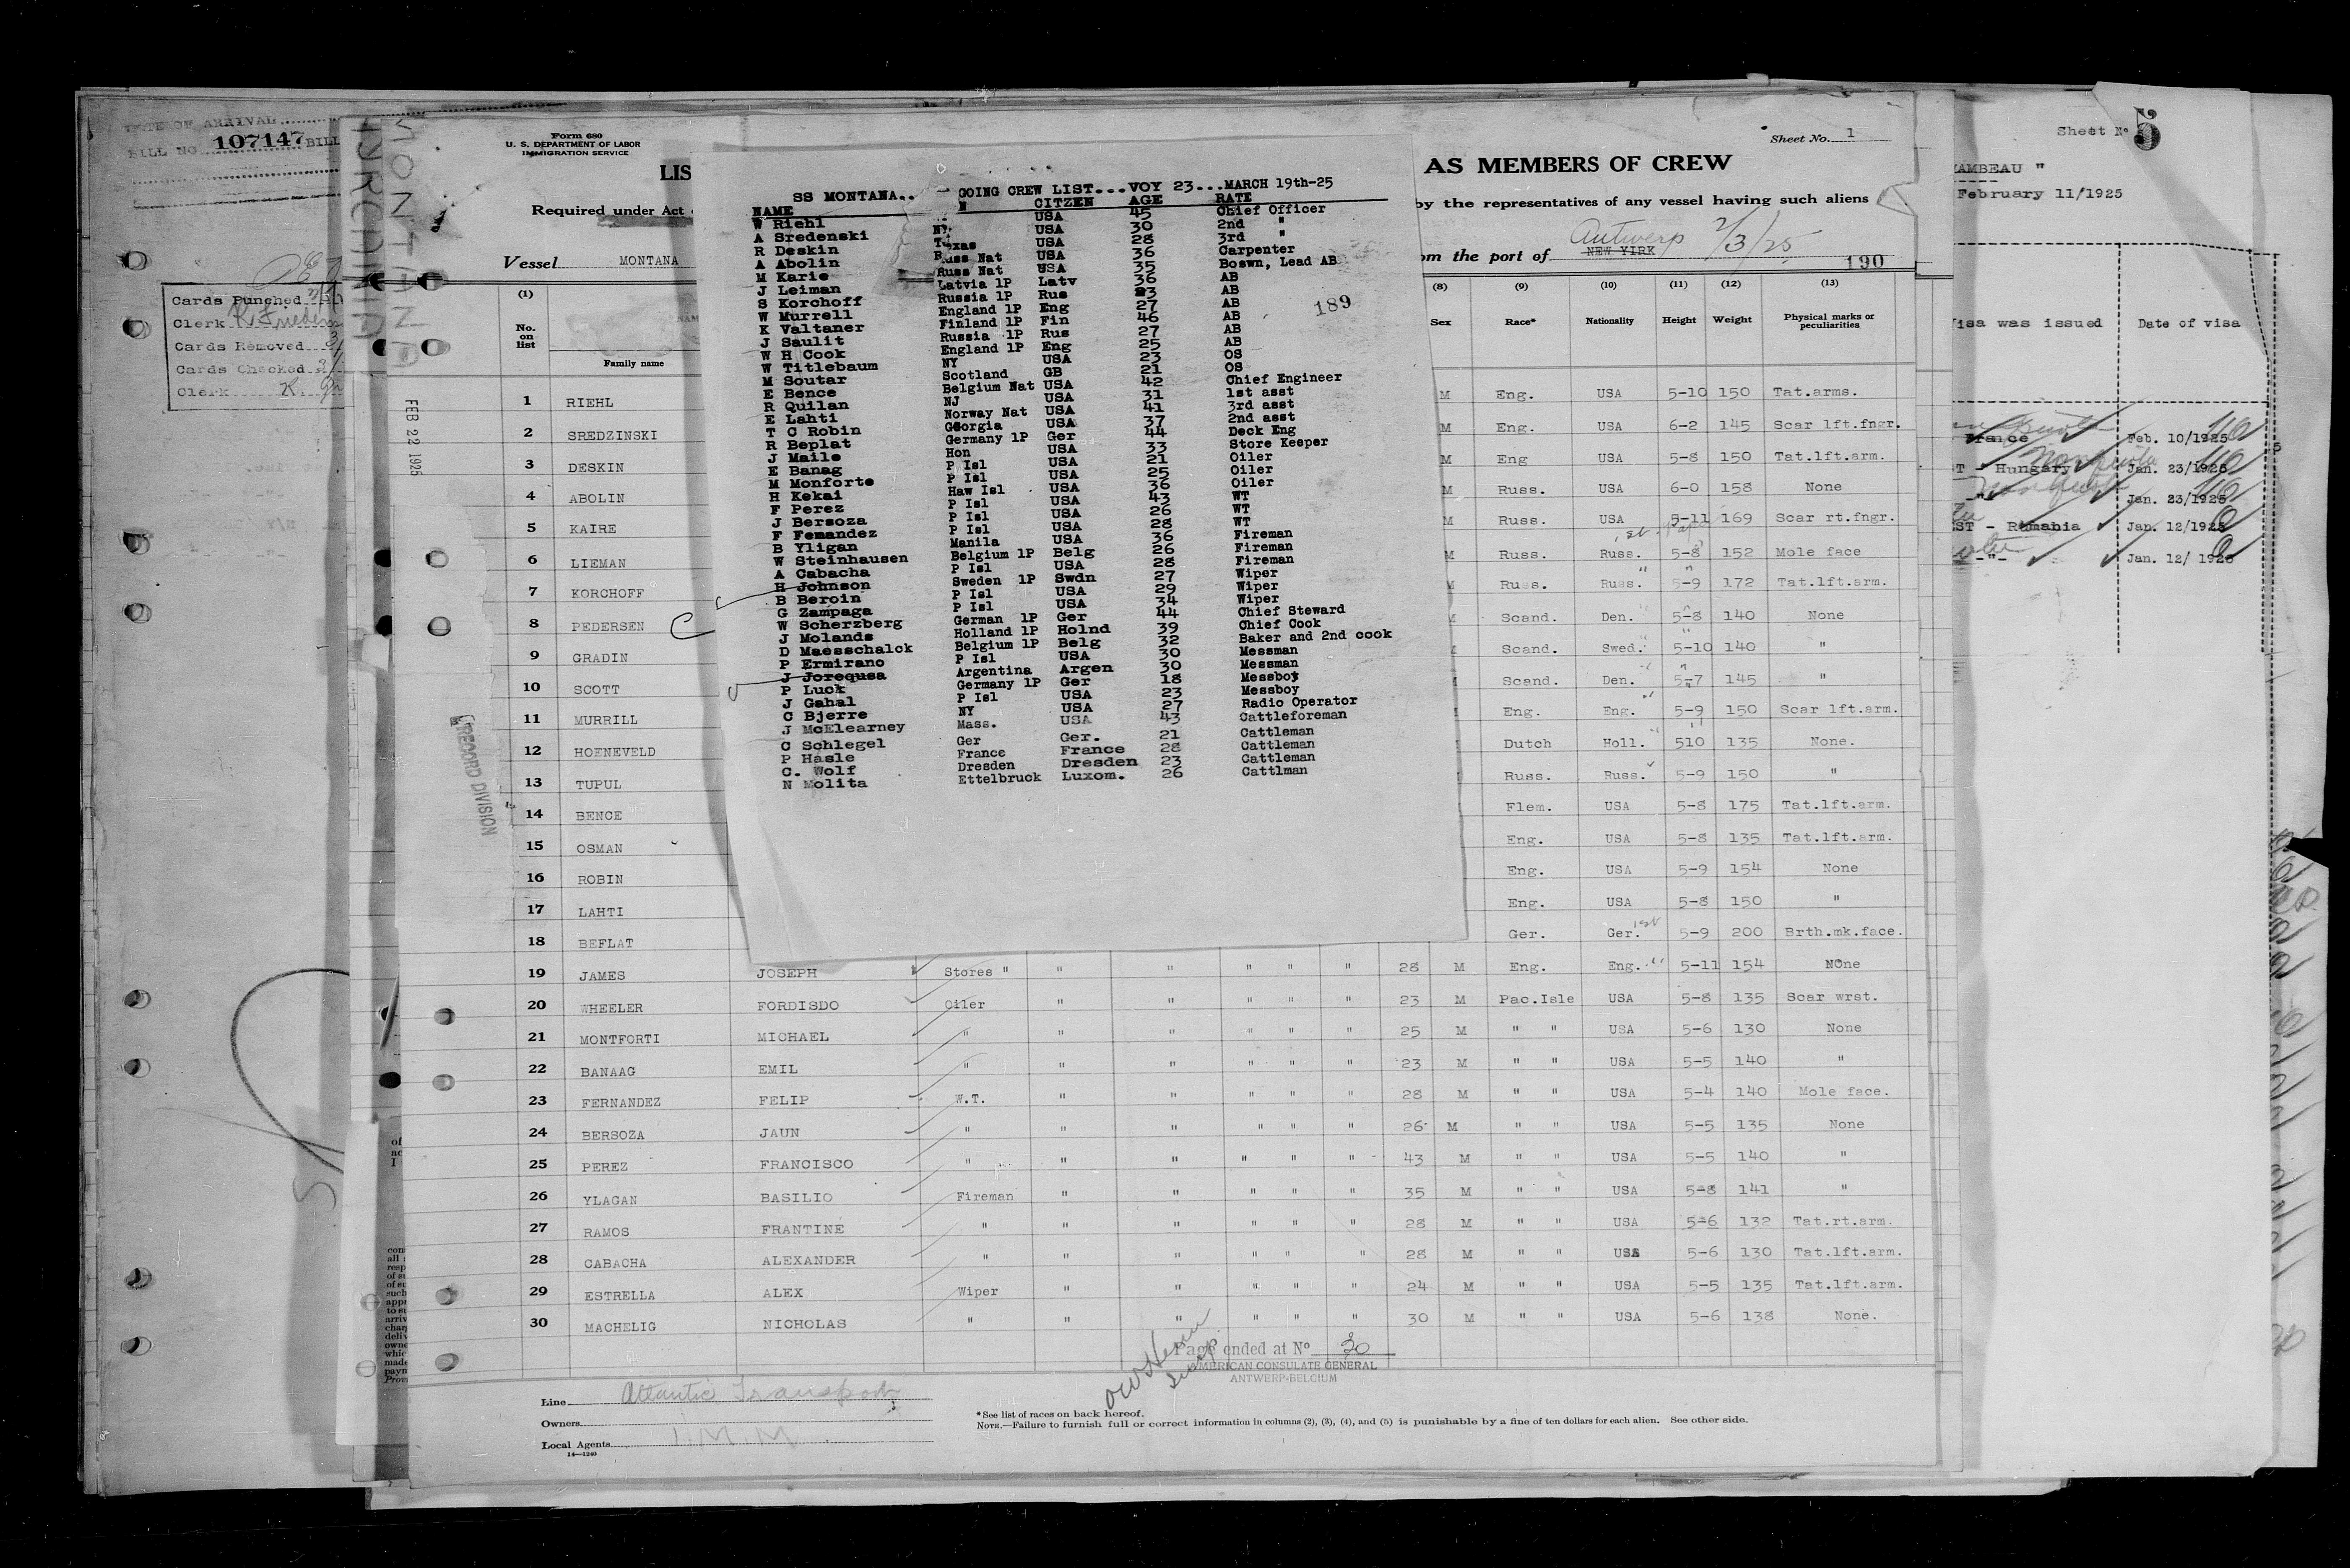 DATE OF ARRIVAL
BILL NO. 107147 BILL
Cards Punched
Clerk K. Frieden
Cards Removed
Cards Checked
Clerk K.
MONTANA
FEB 22 1925
RECORD DIVISION
Form 680
U. S. DEPARTMENT OF LABOR
IMMIGRATION SERVICE
Sheet No. 1
LIS AS MEMBERS OF CREW
Required under Act by the representatives of any vessel having such aliens
Vessel MONTANA om the port of NEW YIRK Antwerp 2/3/25
190
SS MONTANA.. GOING CREW LIST...VOY 23...MARCH 19th-25
NAME N CITZEN AGE RATE
W Riehl USA 45 Chief Officer
A Sredenski NY USA 30 2nd "
R Deskin Texas USA 28 3rd "
A Abolin Russ Nat USA 36 Carpenter
M Karie Russ Nat USA 35 Boswn, Lead AB
J Leiman Latvia 1P Latv 36 AB
S Korchoff Russia 1P Rus 23 AB
W Murrell England 1P Eng 27 AB
K Valtaner Finland 1P Fin 46 AB
J Saulit Russia 1P Rus 27 AB
W H Cook England 1P Eng 25 AB
W Titlebaum NY USA 23 OS
M Soutar Scotland GB 21 OS
E Bence Belgium Nat USA 42 Chief Engineer
R Quilan NJ USA 31 1st asst
E Lahti Norway Nat USA 41 3rd asst
T C Robin Georgia USA 37 2nd asst
R Beplat Germany 1P Ger 44 Deck Eng
J Maile Hon USA 33 Store Keeper
E Banag P Isl USA 21 Oiler
M Monforte P Isl USA 25 Oiler
H Kekai Haw Isl USA 36 Oiler
F Perez P Isl USA 43 WT
J Bersoza P Isl USA 26 WT
F Femandez P Isl USA 28 WT
B Yligan Manila USA 36 Fireman
W Steinhausen Belgium 1P Belg 26 Fireman
A Cabacha P Isl USA 28 Fireman
H Johnson Sweden 1P Swdn 27 Wiper
B Beroin P Isl USA 29 Wiper
G Zampaga P Isl USA 34 Wiper
W Scherzberg German 1P Ger 44 Chief Steward
J Molands Holland 1P Holnd 39 Chief Cook
D Maesschalck Belgium 1P Belg 32 Baker and 2nd cook
P Ermirano P Isl USA 30 Messman
J Jorequsa Argentina Argen 30 Messman
P Luck Germany 1P Ger 18 Messboy
J Gahal P Isl USA 23 Messboy
C Bjerre NY USA 27 Radio Operator
J McElearney Mass. USA 43 Cattleforeman
C Schlegel Ger Ger. 21 Cattleman
P Hasle France France 28 Cattleman
C. Wolf Dresden Dresden 23 Cattleman
N Molita Ettelbruck Luxom. 26 Cattlman
189
(1) (8) (9) (10) (11) (12) (13)
No. on list Family name Sex Race* Nationality Height Weight Physical marks or peculiarities
1 RIEHL M Eng. USA 5-10 150 Tat.arms.
2 SREDZINSKI M Eng. USA 6-2 145 Scar lft.fngr.
3 DESKIN M Eng USA 5-8 150 Tat.lft.arm.
4 ABOLIN M Russ. USA 6-0 158 None
5 KAIRE M Russ. USA 5-11 169 Scar rt.fngr.
6 LIEMAN M Russ. Russ. 5-8 152 Mole face
7 KORCHOFF M Russ. Russ. 5-9 172 Tat.lft.arm.
8 PEDERSEN Scand. Den. 5-8 140 None
9 GRADIN Scand. Swed. 5-10 140 "
10 SCOTT Scand. Den. 5-7 145 "
11 MURRILL Eng. Eng. 5-9 150 Scar lft.arm.
12 HOENEVELD Dutch Holl. 510 135 None.
13 TUPUL Russ. Russ. 5-9 150 "
14 BENCE Flem. USA 5-8 175 Tat.lft.arm.
15 OSMAN Eng. USA 5-8 135 Tat.lft.arm.
16 ROBIN Eng. USA 5-9 154 None
17 LAHTI Eng. USA 5-8 150 "
18 BEFLAT Ger. Ger. 1st 5-9 200 Brth.mk.face.
19 JAMES JOSEPH Stores " " " " " " 28 M Eng. Eng. " 5-11 154 NOne
20 WHEELER FORDISDO Oiler " " " " " 23 M Pac.Isle USA 5-8 135 Scar wrst.
21 MONTFORTI MICHAEL " " " " " " 25 M " " USA 5-6 130 None
22 BANAAG EMIL " " " " " " 23 M " " USA 5-5 140 "
23 FERNANDEZ FELIP W.T. " " " " " 28 M " " USA 5-4 140 Mole face.
24 BERSOZA JAUN " " " " " " 26 M " " USA 5-5 135 None
25 PEREZ FRANCISCO " " " " " " 43 M " " USA 5-5 140 "
26 YLAGAN BASILIO Fireman " " " " " 35 M " " USA 5-8 141 "
27 RAMOS FRANTINE " " " " " " 28 M " " USA 5-6 132 Tat.rt.arm.
28 CABACHA ALEXANDER " " " " " " 28 M " " USA 5-6 130 Tat.lft.arm.
29 ESTRELLA ALEX Wiper " " " " " 24 M " " USA 5-5 135 Tat.lft.arm.
30 MACHELIG NICHOLAS " " " " " " 30 M " " USA 5-6 138 None.
Page ended at No 30
AMERICAN CONSULATE GENERAL
ANTWERP-BELGIUM
Line Atlantic Transport
Owners
Local Agents I.M.M
14—1240
*See list of races on back hereof.
NOTE.—Failure to furnish full or correct information in columns (2), (3), (4), and (5) is punishable by a fine of ten dollars for each alien. See other side.
Sheet No 5
AMBEAU "
February 11/1925
isa was issued Date of visa
France Feb. 10/1925
T - Hungary Jan. 23/1925
-"- Jan. 23/1925
ST - Romania Jan. 12/1925
-"- Jan. 12/ 1925